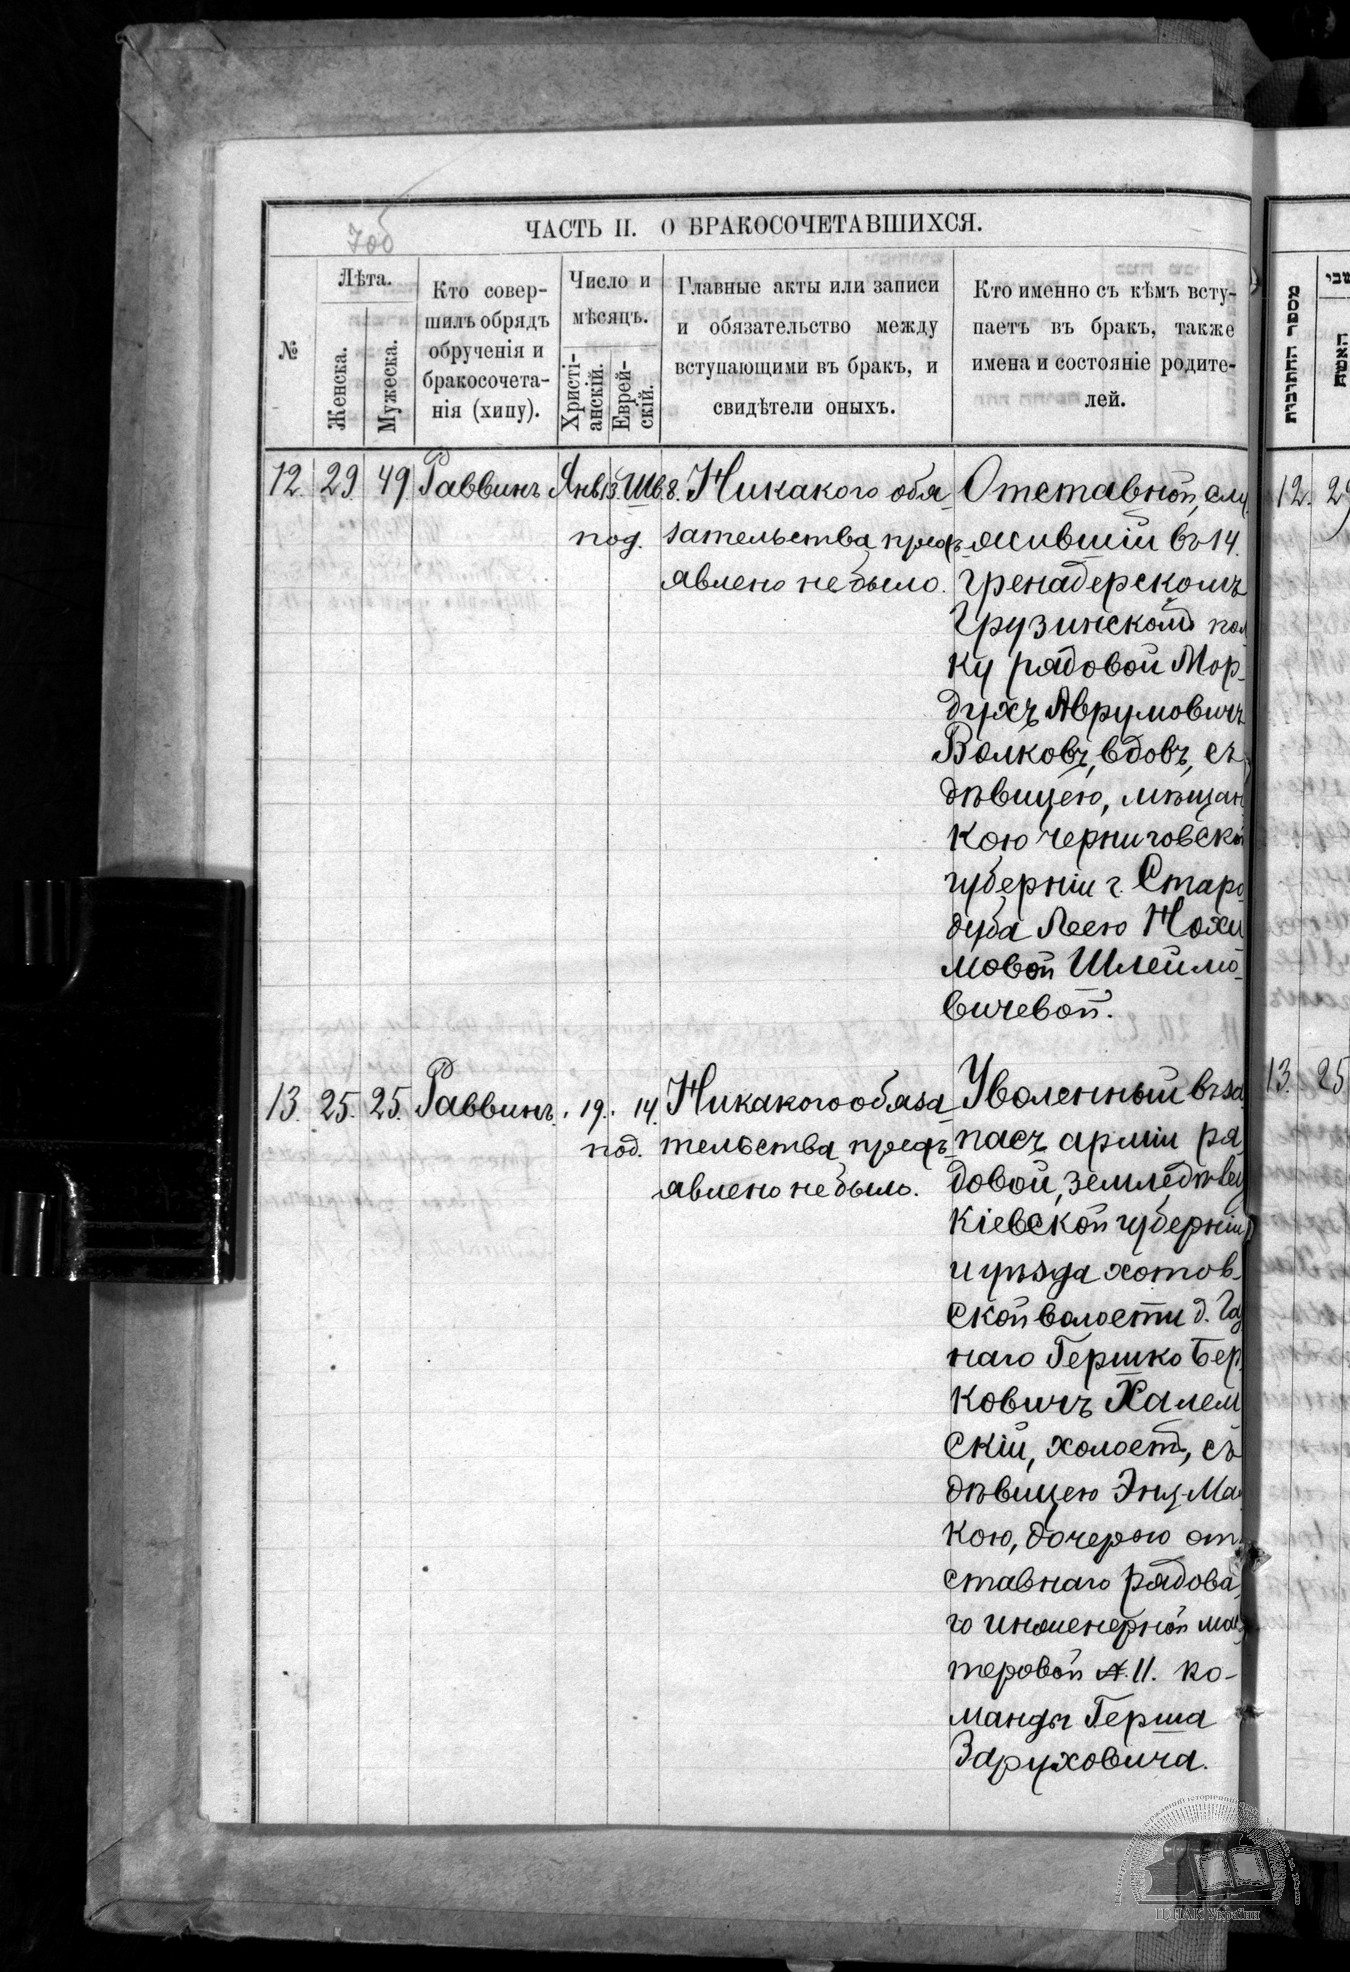 ЧАСТЬ II. О БРАКОСОЧЕТАВШИХСЯ.
706
№
Лѣта.
Женска.
Мужеска.
Кто совер-
шилъ обрядъ
обрученія и
бракосочета-
нія (хипу).
Число и
мѣсяцъ.
Христі-
анскій.
Еврей-
скій.
Главные акты или записи
и обязательство между
вступающими въ бракъ, и
свидѣтели оныхъ.
Кто именно съ кѣмъ всту-
паетъ въ бракъ, также
имена и состояніе родите-
лей.
מספר החתונות
האשה
12. 29 49 Раввинъ Янв. 13. Шв. 8.
под.
Никакого обя-
зательства предъ-
явлено не было.
Отставной, слу
жившій въ 14.
гренадерскомъ
Грузинскомъ пол
ку рядовой Мор-
духъ Аврумовичъ
Волковъ, вдовъ, съ
дѣвицею, мѣщан
кою черниговской
губерніи г. Старо
дуба Леею Нохи
мовой Шлеймо-
вичевой.
13. 25. 25. Раввинъ. 19. 14.
под.
Никакого обяза
тельства предъ-
явлено не было.
Уволенный въ за
пасъ арміи ря
довой, земледѣлец
Кіевской губерніи
и уѣзда хотов-
ской волости д.
наго Гершко Бер
ковичъ Халем
скій, холостъ, съ
дѣвицею Эня-Ма
кою, дочерью от
ставнаго рядова
го инженерной мас
теровой №. 11. ко-
манды Герша
Заруховича.
12. 29
13. 25
ЦДІАК України